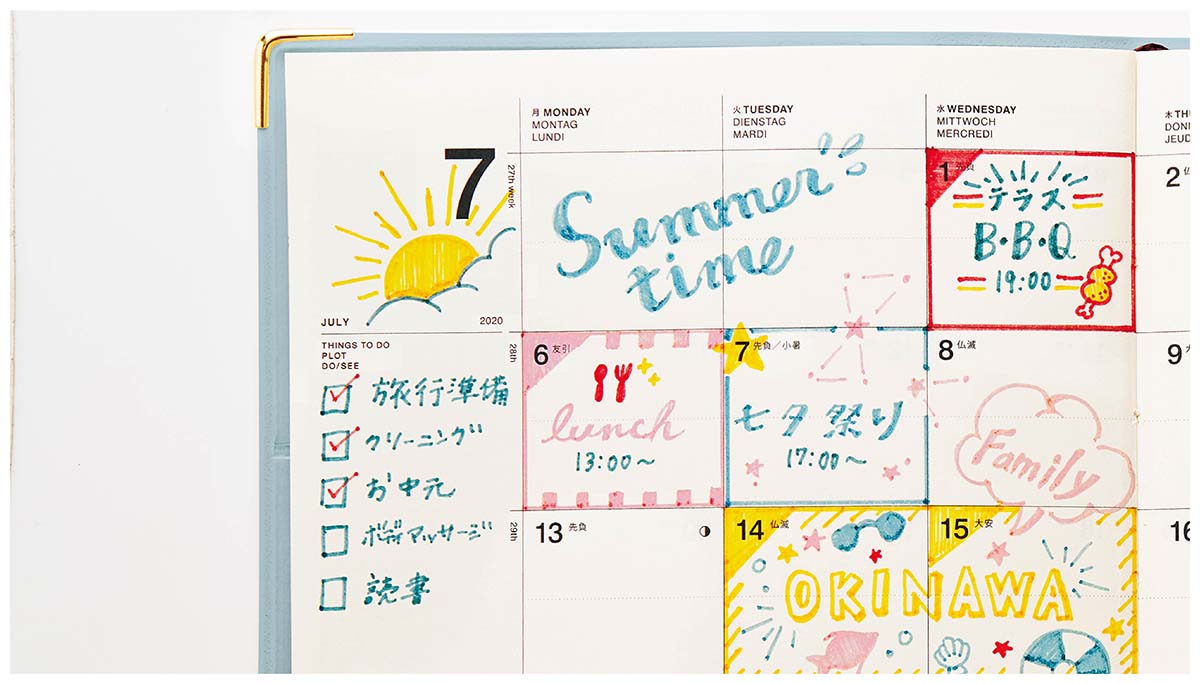 月 MONDAY
MONTAG
LUNDI
火 TUESDAY
DIENSTAG
MARDI
水 WEDNESDAY
MITTWOCH
MERCREDI
木
DON
JEUD
7
27th week
JULY 2020
Summer
time
1 先負
テラス
B・B・Q
19:00
2
THINGS TO DO
PLOT
DO/SEE
旅行準備
クリーニング
お中元
ボディマッサージ
読書
28th
6 友引
lunch
13:00～
7 先負／小暑
七夕祭り
17:00～
8 仏滅
Family
9
29th
13 先負
14 仏滅
15 大安
OKINAWA
16